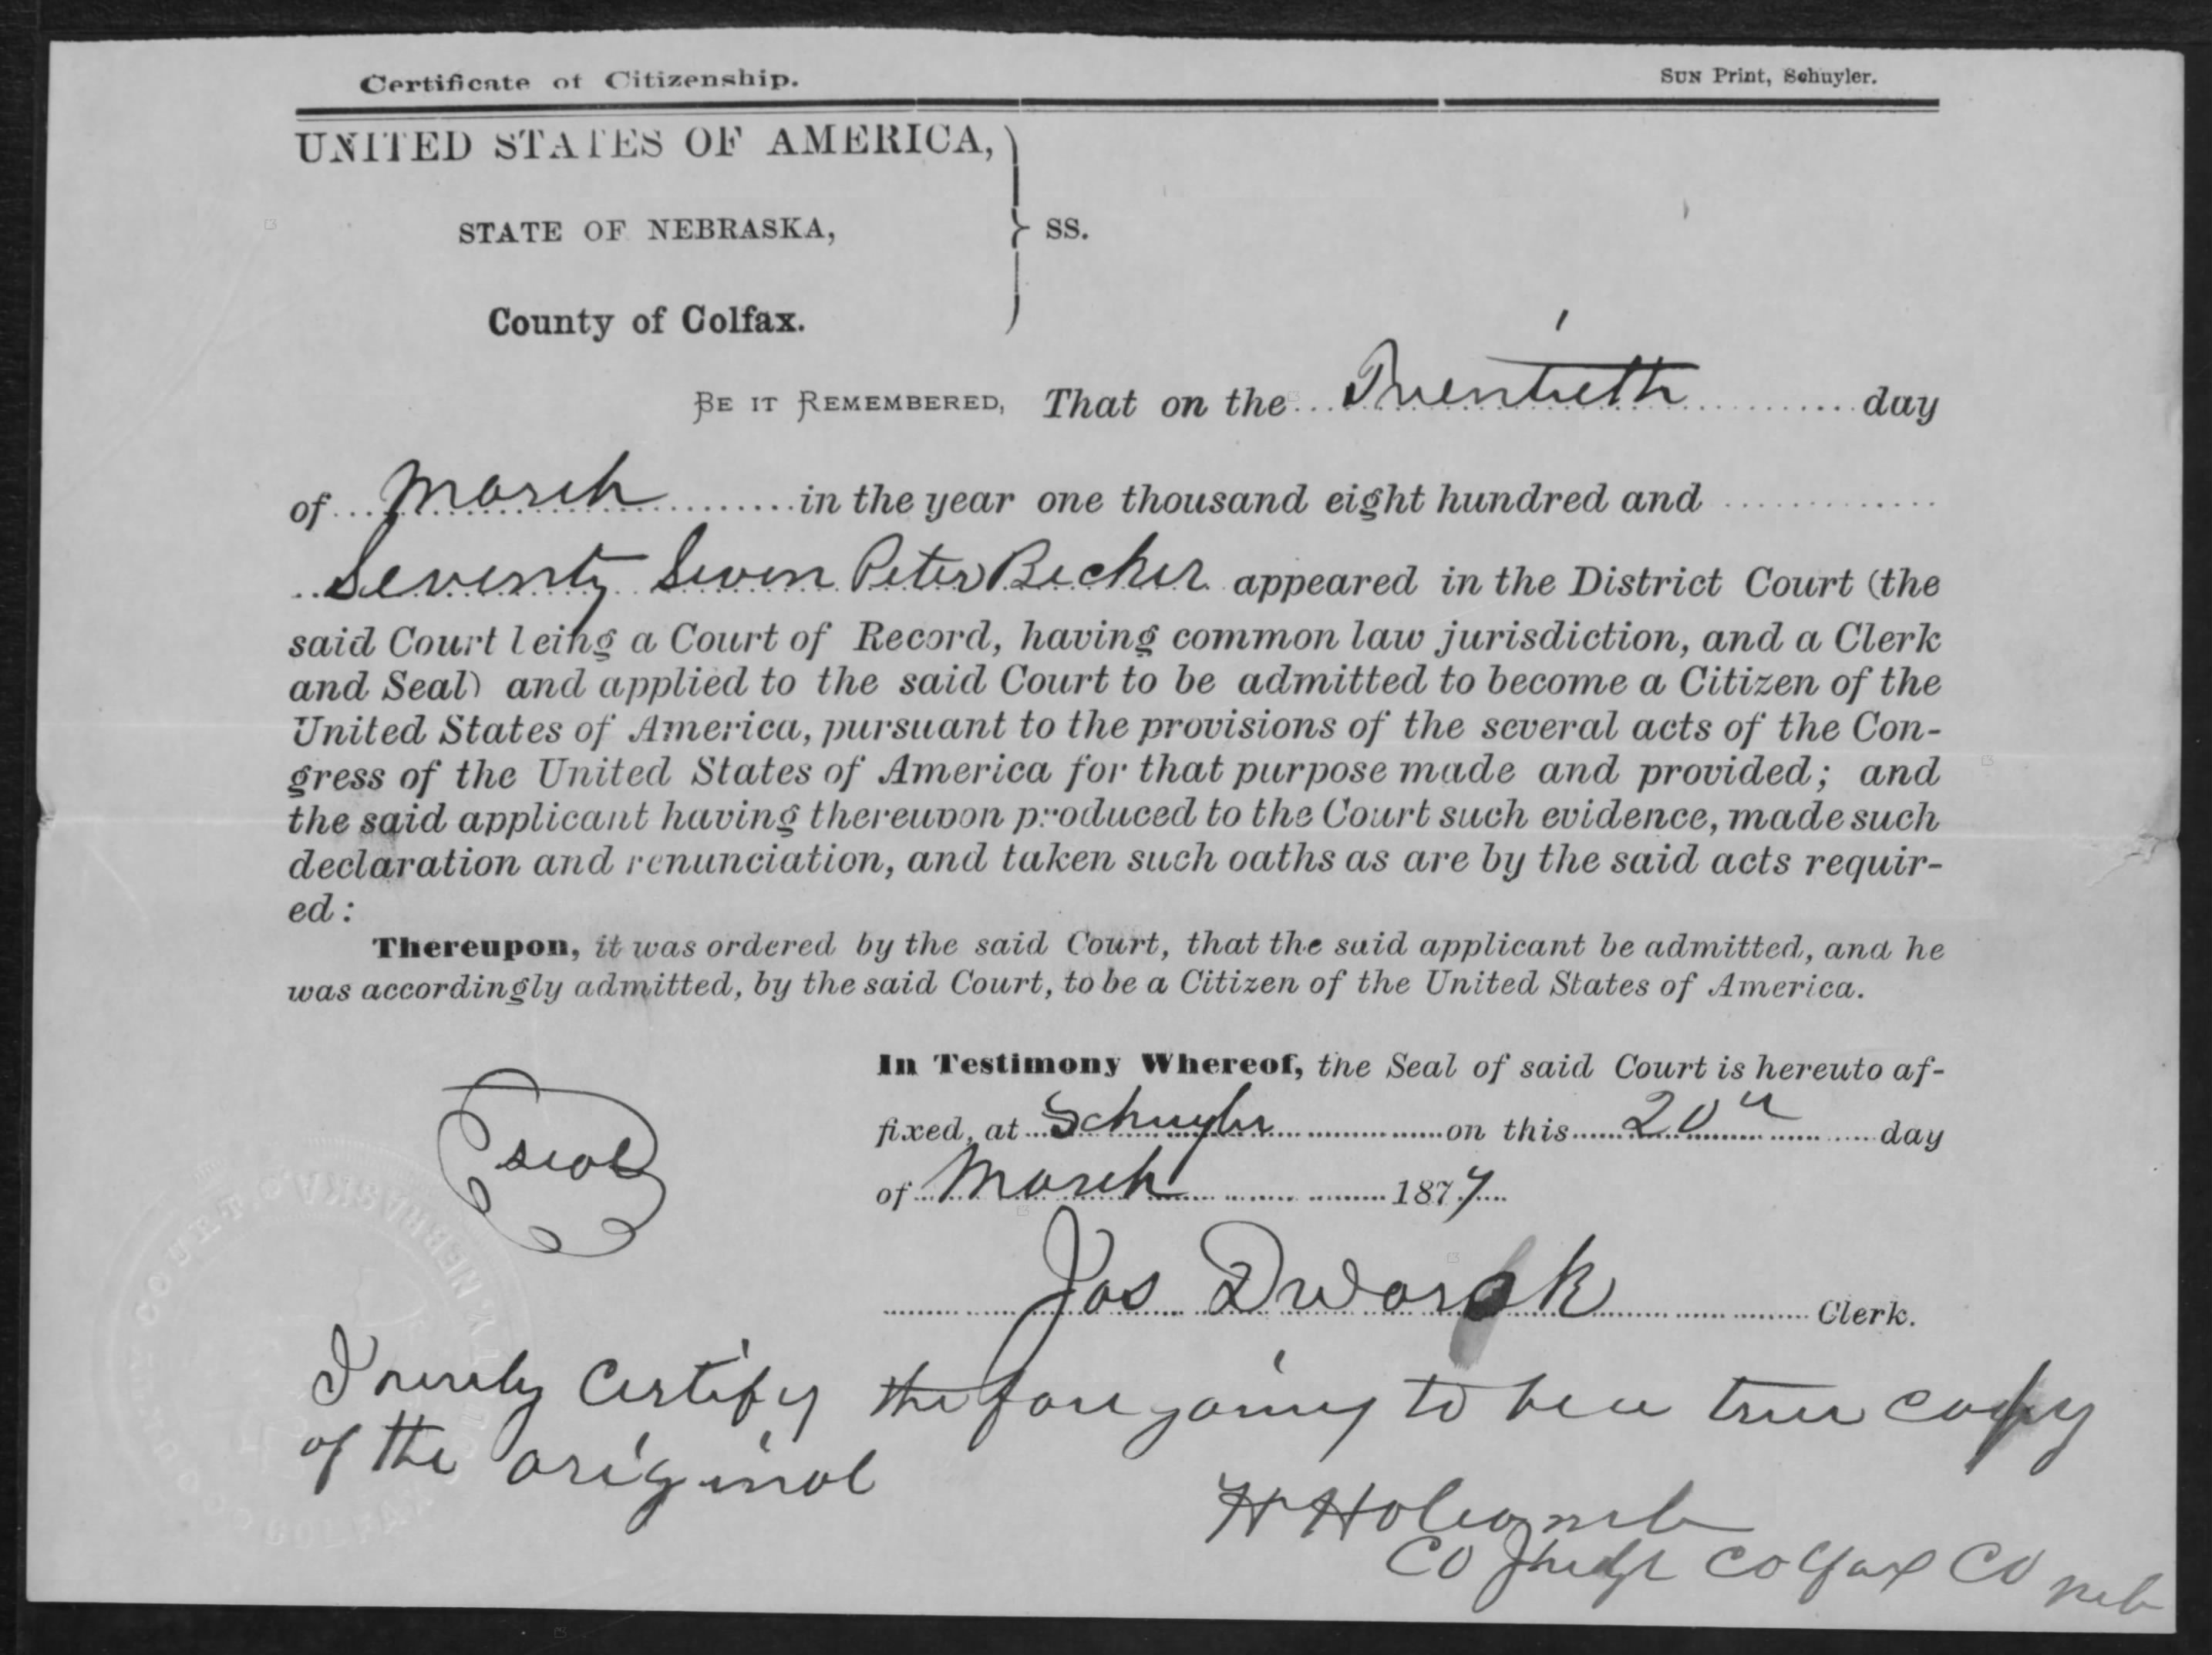 Certificate of Citizenship.
SUN Print, Schuyler.
UNITED STATES OF AMERICA,
STATE OF NEBRASKA, } SS.
County of Colfax.
BE IT REMEMBERED, That on the Twentieth day
of March in the year one thousand eight hundred and
Seventy Seven Peter Becker appeared in the District Court (the
said Court being a Court of Record, having common law jurisdiction, and a Clerk
and Seal) and applied to the said Court to be admitted to become a Citizen of the
United States of America, pursuant to the provisions of the several acts of the Con-
gress of the United States of America for that purpose made and provided; and
the said applicant having thereupon produced to the Court such evidence, made such
declaration and renunciation, and taken such oaths as are by the said acts requir-
ed:
Thereupon, it was ordered by the said Court, that the said applicant be admitted, and he
was accordingly admitted, by the said Court, to be a Citizen of the United States of America.
In Testimony Whereof, the Seal of said Court is hereuto af-
fixed, at Schuyler on this 20th day
of March 1877
seal
Jos Dworak Clerk.
I hereby Certify the fore going to be a true copy
of the original
H Holcomb
CO Judge Colfax CO Neb
COUNTY COURT NEBRASKA
COLFAX